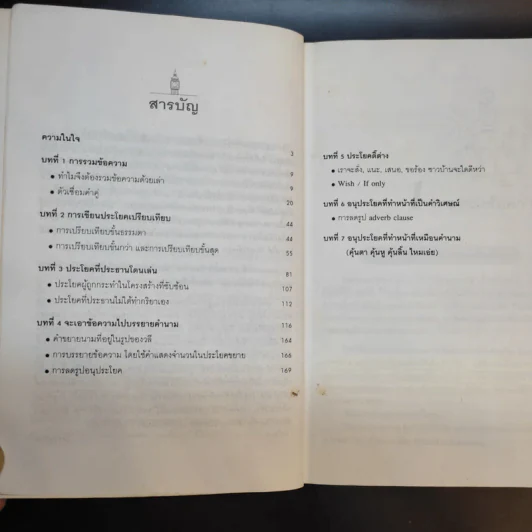 สารบัญ
ความในใจ 3
บทที่ 1 การรวมข้อความ 9
• ทำไมจึงต้องรวมข้อความด้วยเล่า 9
• ตัวเชื่อมคำคู่ 20
บทที่ 2 การเขียนประโยคเปรียบเทียบ 44
• การเปรียบเทียบขั้นธรรมดา 44
• การเปรียบเทียบขั้นกว่า และการเปรียบเทียบขั้นสุด 55
บทที่ 3 ประโยคที่ประธานโดนเล่น 81
• ประโยคผู้ถูกกระทำในโครงสร้างที่ซับซ้อน 107
• ประโยคที่ประธานไม่ได้ทำกริยาเอง 112
บทที่ 4 จะเอาข้อความไปบรรยายคำนาม 116
• คำขยายนามที่อยู่ในรูปของวลี 164
• การบรรยายข้อความ โดยใช้คำแสดงจำนวนในประโยคขยาย 166
• การลดรูปอนุประโยค 169
บทที่ 5 ประโยคดี๊ต่าง
• เราจะสั่ง, แนะ, เสนอ, ขอร้อง ชาวบ้านจะใดดีหว่า
• Wish / If only
บทที่ 6 อนุประโยคที่ทำหน้าที่เป็นคำวิเศษณ์
• การลดรูป adverb clause
บทที่ 7 อนุประโยคที่ทำหน้าที่เหมือนคำนาม
(คุ้นตา คุ้นหู คุ้นลิ้น ไหมเอ่ย)